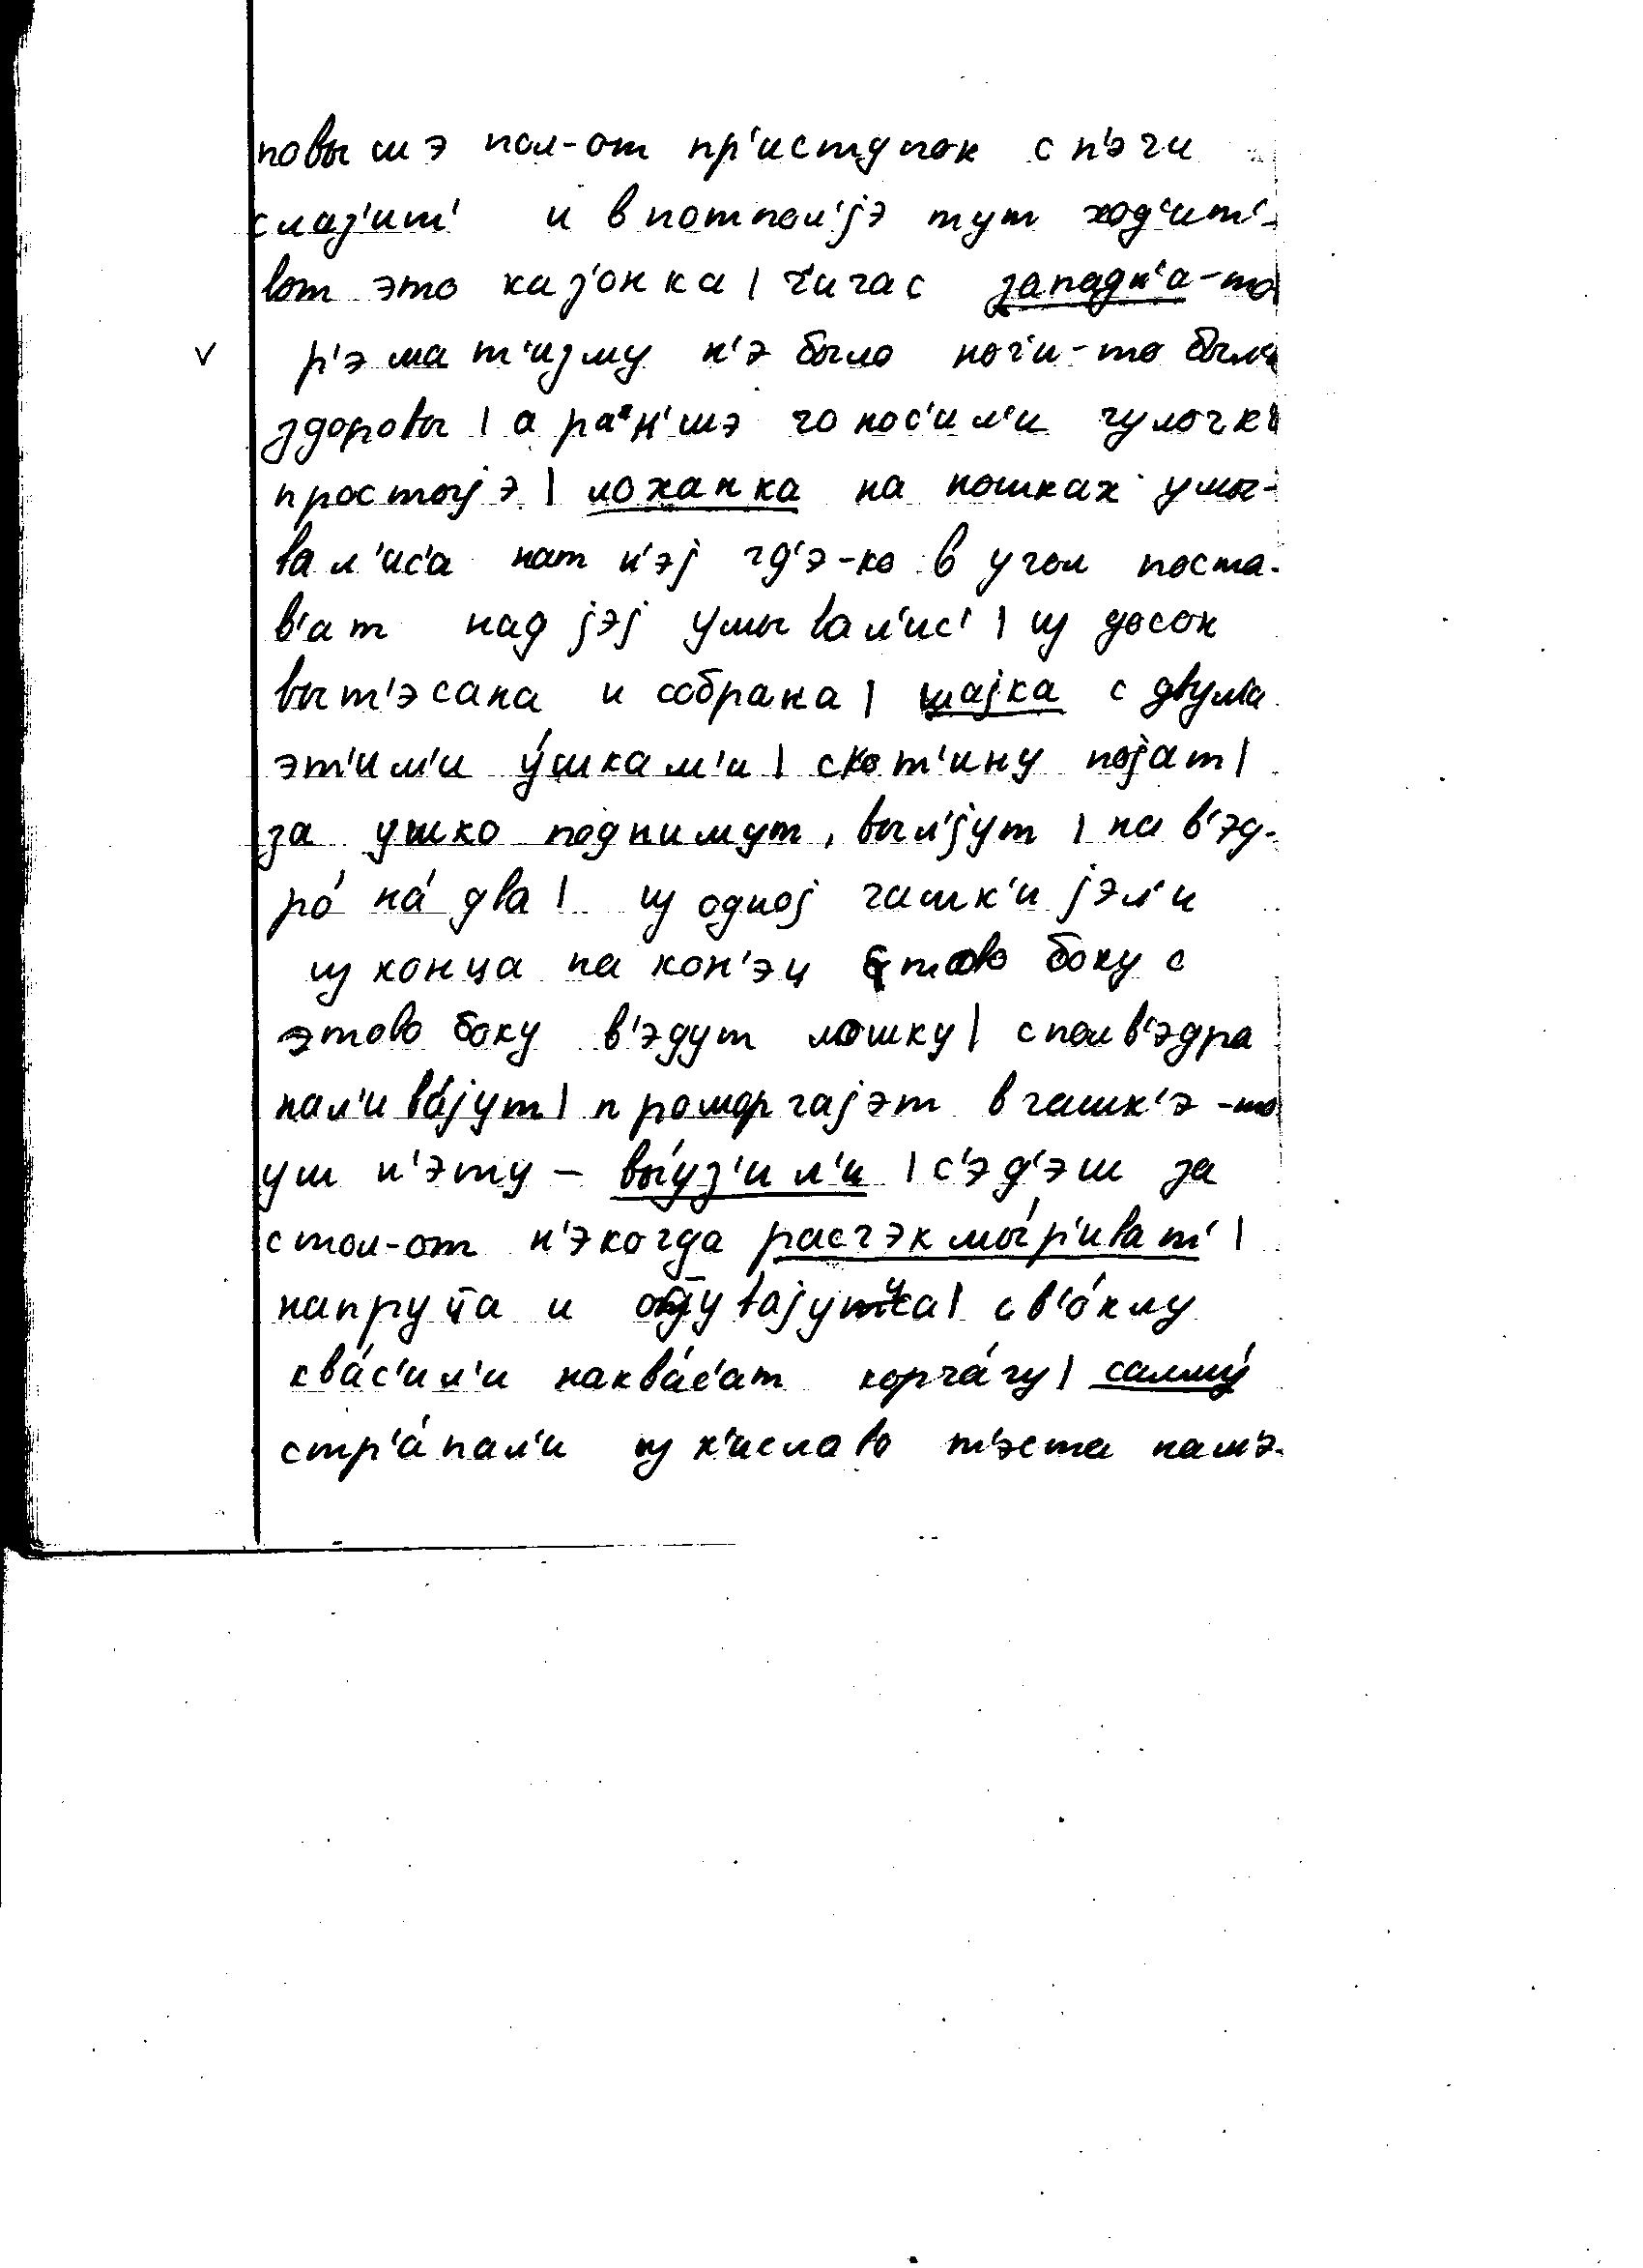 повышэ пол-от пр'иступок с п'эчи
слаз'ит' и в потпол'jэ тут ход'ит'-
вот это каз'онка | чичас западн'а-то
v р'эмат'измy н'э было ноги-то были
здоровы | а ран'шэ чо нос'ил'и чулочки
простоjэ | лоханка на ношках умы-
вал'ис'а нат н'эj гд'э-ко в угол поста-
в'ат над jэj умывал'ис' | из досок
выт'эсана и собрана | шаjка с двума
эт'им'и у́шкам'и | скот'ину поjат |
за ушко поднимут, выл'jут | на в'эд-
ро́ на́ два | из одноj чашк'и jэл'и
из конца на кон'эц с тово боку с
этово боку в'эдут лошку | с полв'эдра
нал'ива́jут | проморгаjэт в чашк'э-то
уш н'эту – вы́уз'ил'и | с'эд'эш за
стол-от н'экогда расчэкмы́р'иват' |
напруца и | св'о́клу
ква́с'ил'и наква́с'ат корча́гу | салму́
стр'а́пал'и из к'иславо т'эста намэ-